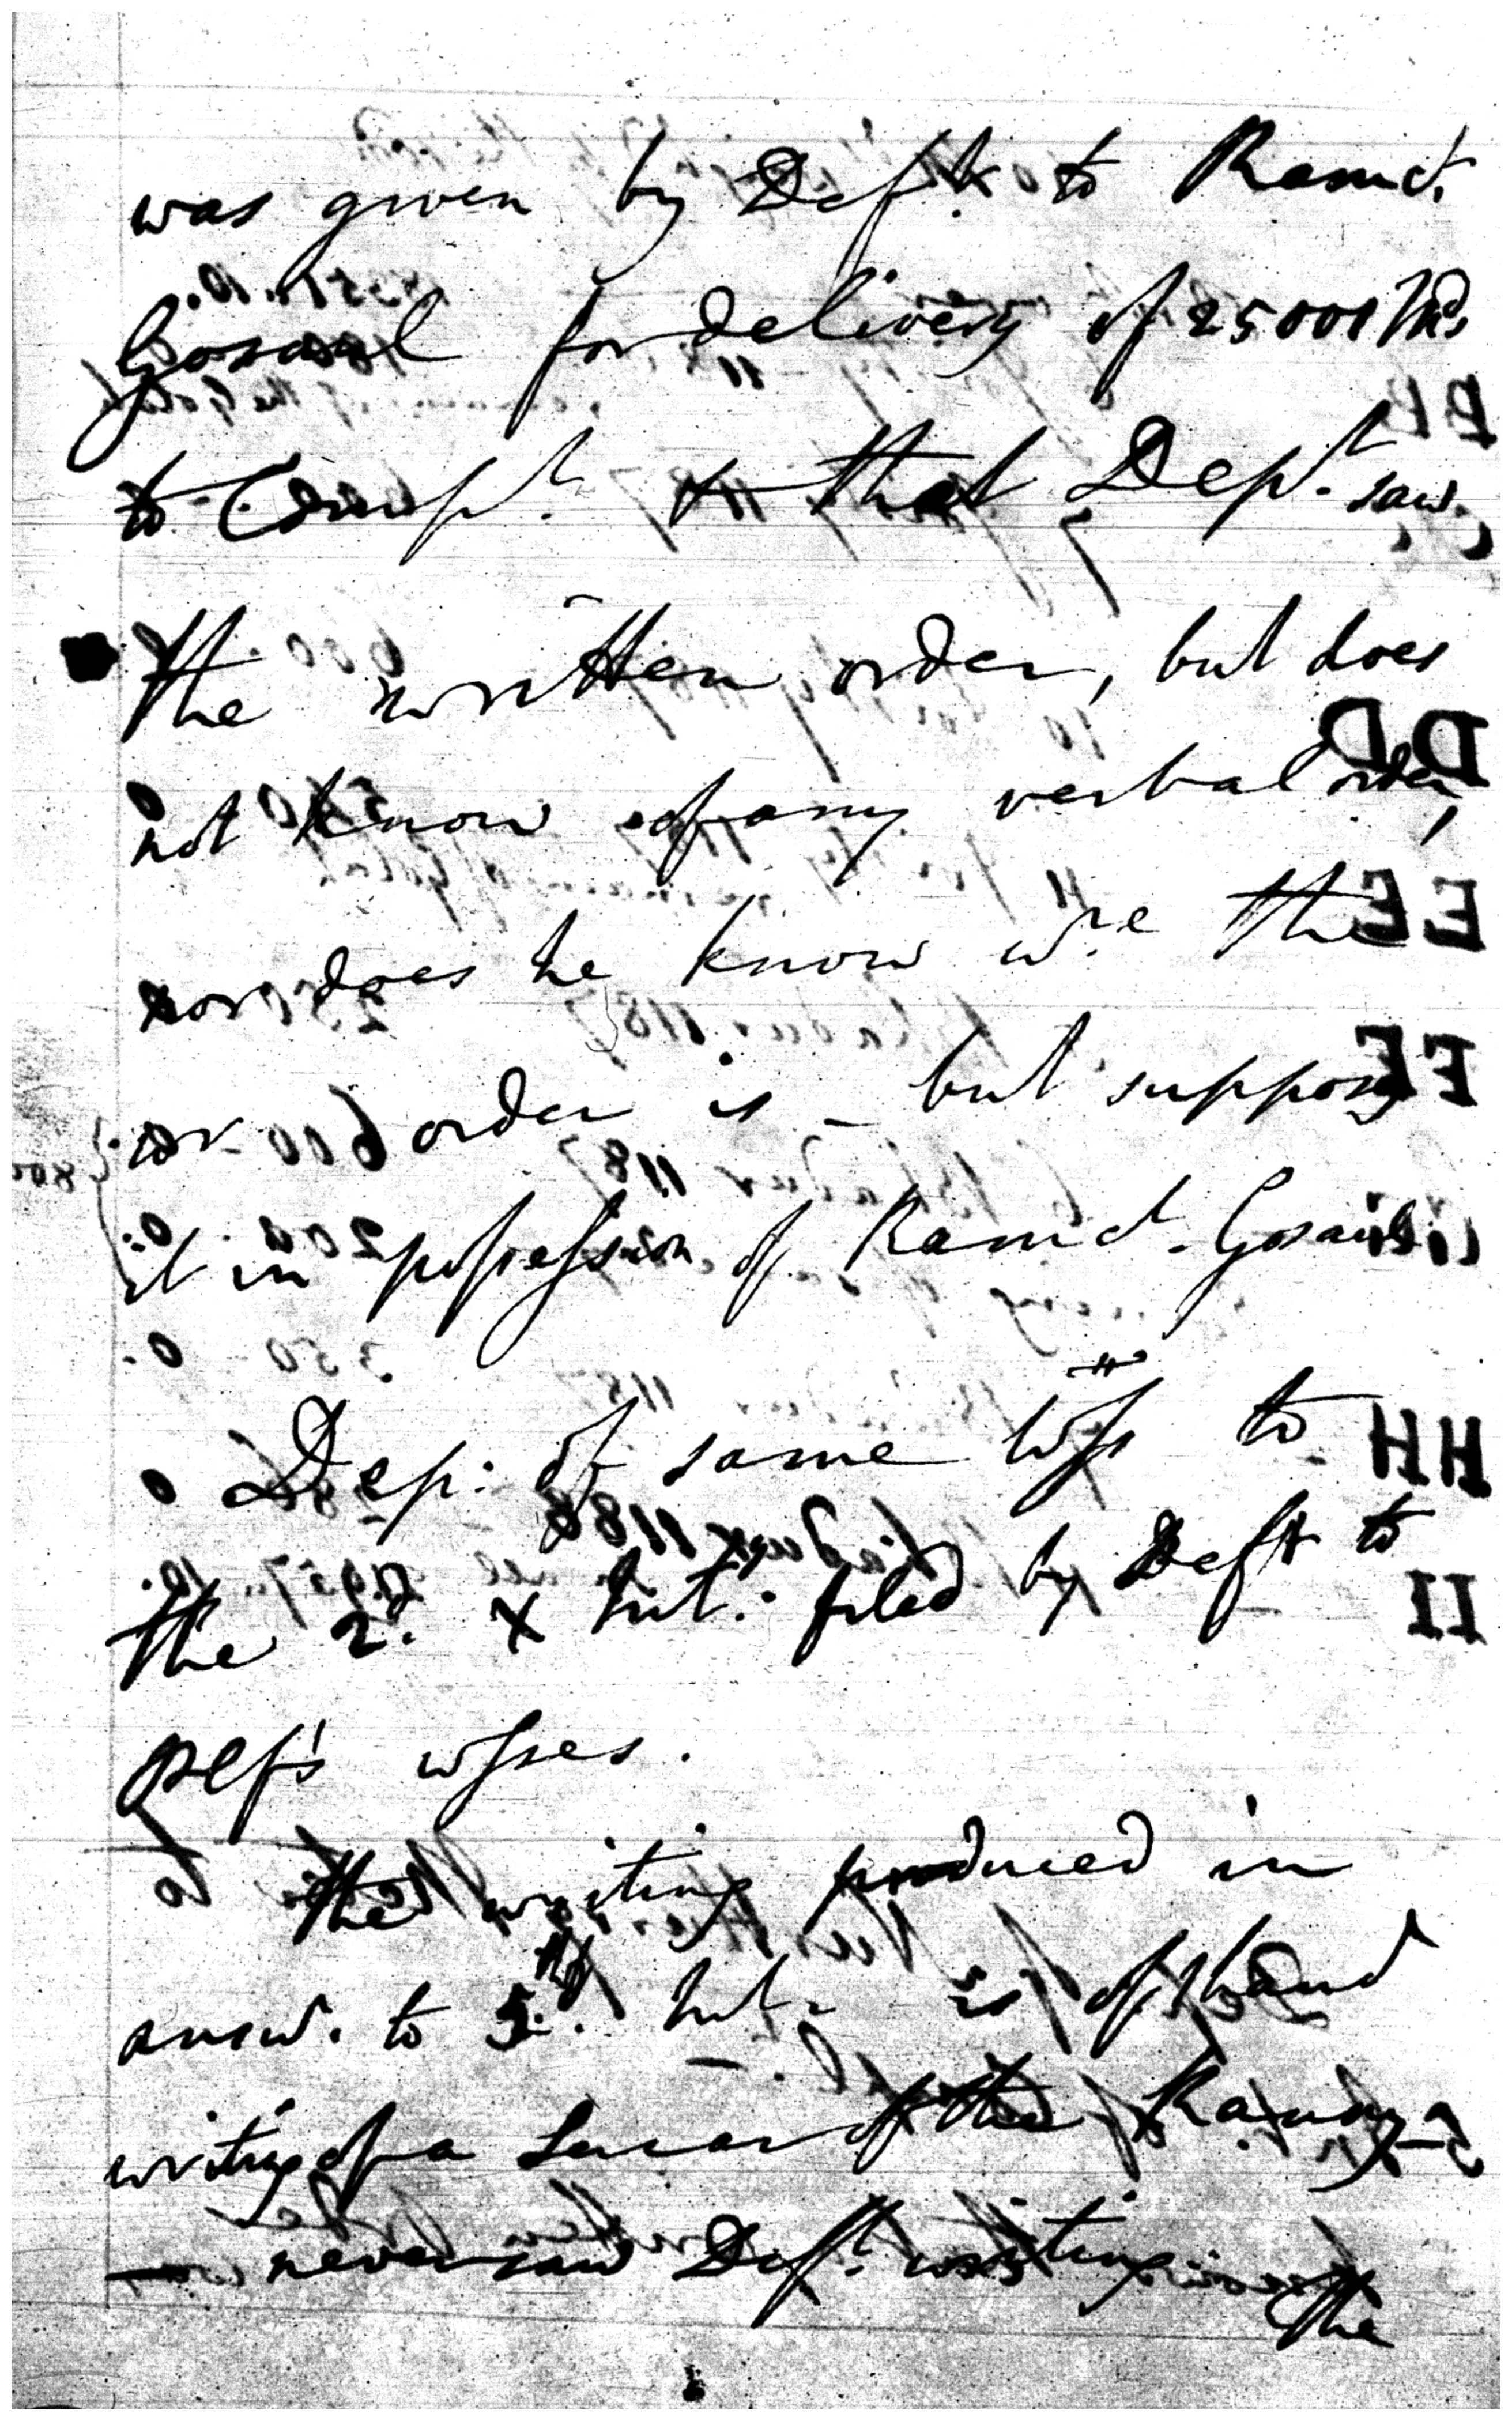 was given by Deft. to Ramct.
Gosaul for delivery of 25000 Mds
to Compt. & that Dept. saw
the written order, but does
not know of any verbal order,
nor does he know wre the
wr order is - but supposes
it in possession of Ramct. Gosaul
Dep: of same Wss to
the 2d. X Int: filed by Deft to
wsses.
The writing produced in
answ. to 5th. Int. is of hand
writing of a Sircar of the
- never saw Deft. writing
The